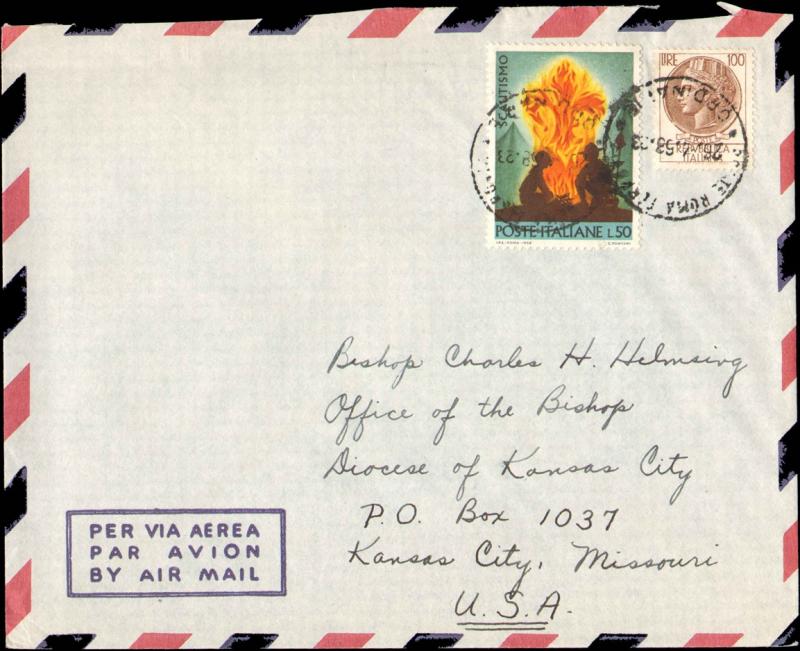 SCAUTISMO
POSTE ITALIANE L.50
LIRE 100
REPVBBLICA
ITALIANA
ROMA
ORDINARIE
Bishop Charles H. Helmsing
Office of the Bishop
Diocese of Kansas City
P.O. Box 1037
Kansas City, Missouri
U.S.A.
PER VIA AEREA
PAR AVION
BY AIR MAIL